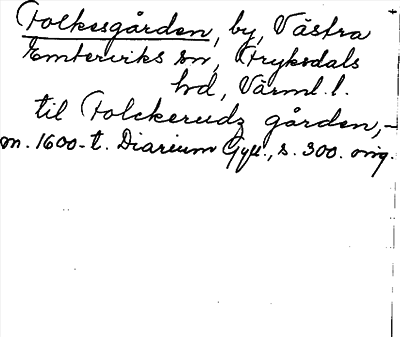 Folkesgården, by, Västra
Emterviks sn, Fryksdals
hd, Värml. l.
til Folckerudz gården,-
m. 1600-t. Diarium Gyll., s. 300. orig.